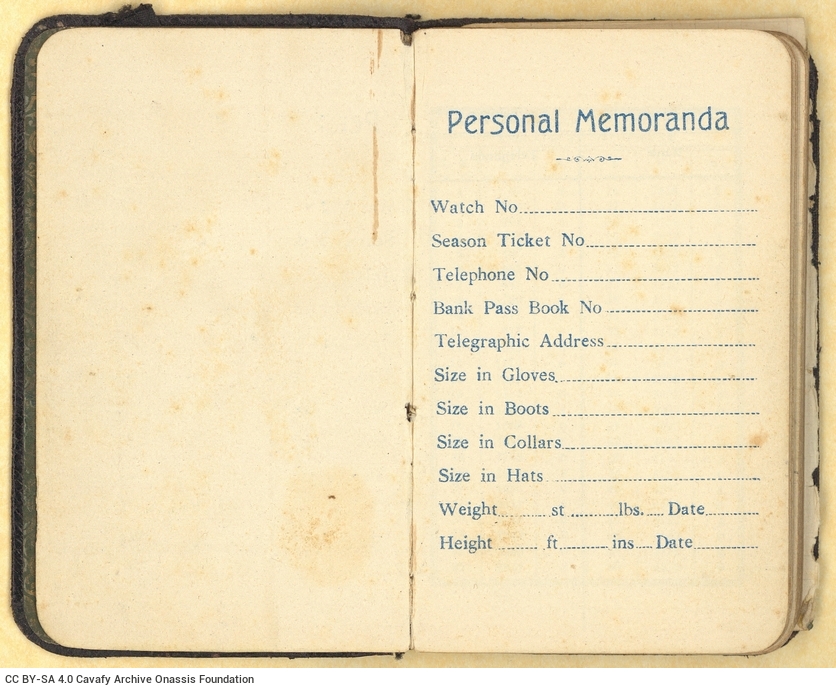 Personal Memoranda
Watch No
Season Ticket No
Telephone No
Bank Pass Book No
Telegraphic Address
Size in Gloves
Size in Boots
Size in Collars
Size in Hats
Weight st lbs. Date
Height ft ins Date
CC BY-SA 4.0 Cavafy Archive Onassis Foundation